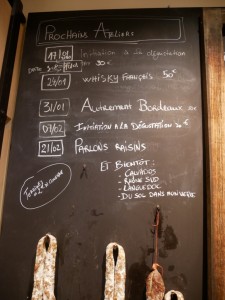 PROCHAINS ATELIERS
17/01 INITIATION A LA DÉGUSTATION
30€
24/01 WHISKY FRANÇAIS 50€
31/01 AUTREMENT BORDEAUX
07/02 INITIATION A LA DÉGUSTATION 30€
21/02 PARLONS RAISINS
ET BIENTÔT :
- CALVADOS
- RHÔNE SUD
- LANGUEDOC
- DU SOL DANS MON VERRE